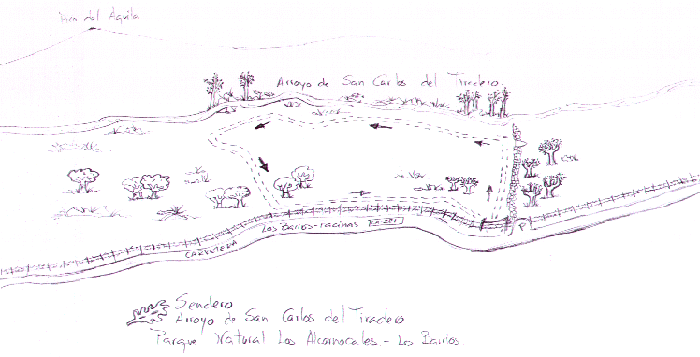 Tajo del Aguila
Arroyo de San Carlos del Tiradero.
Los Barrios-Facinas
CARRETERA
P
Sendero
Arroyo de San Carlos del Tiradero
Parque Natural Los Alcornocales.- Los Barrios